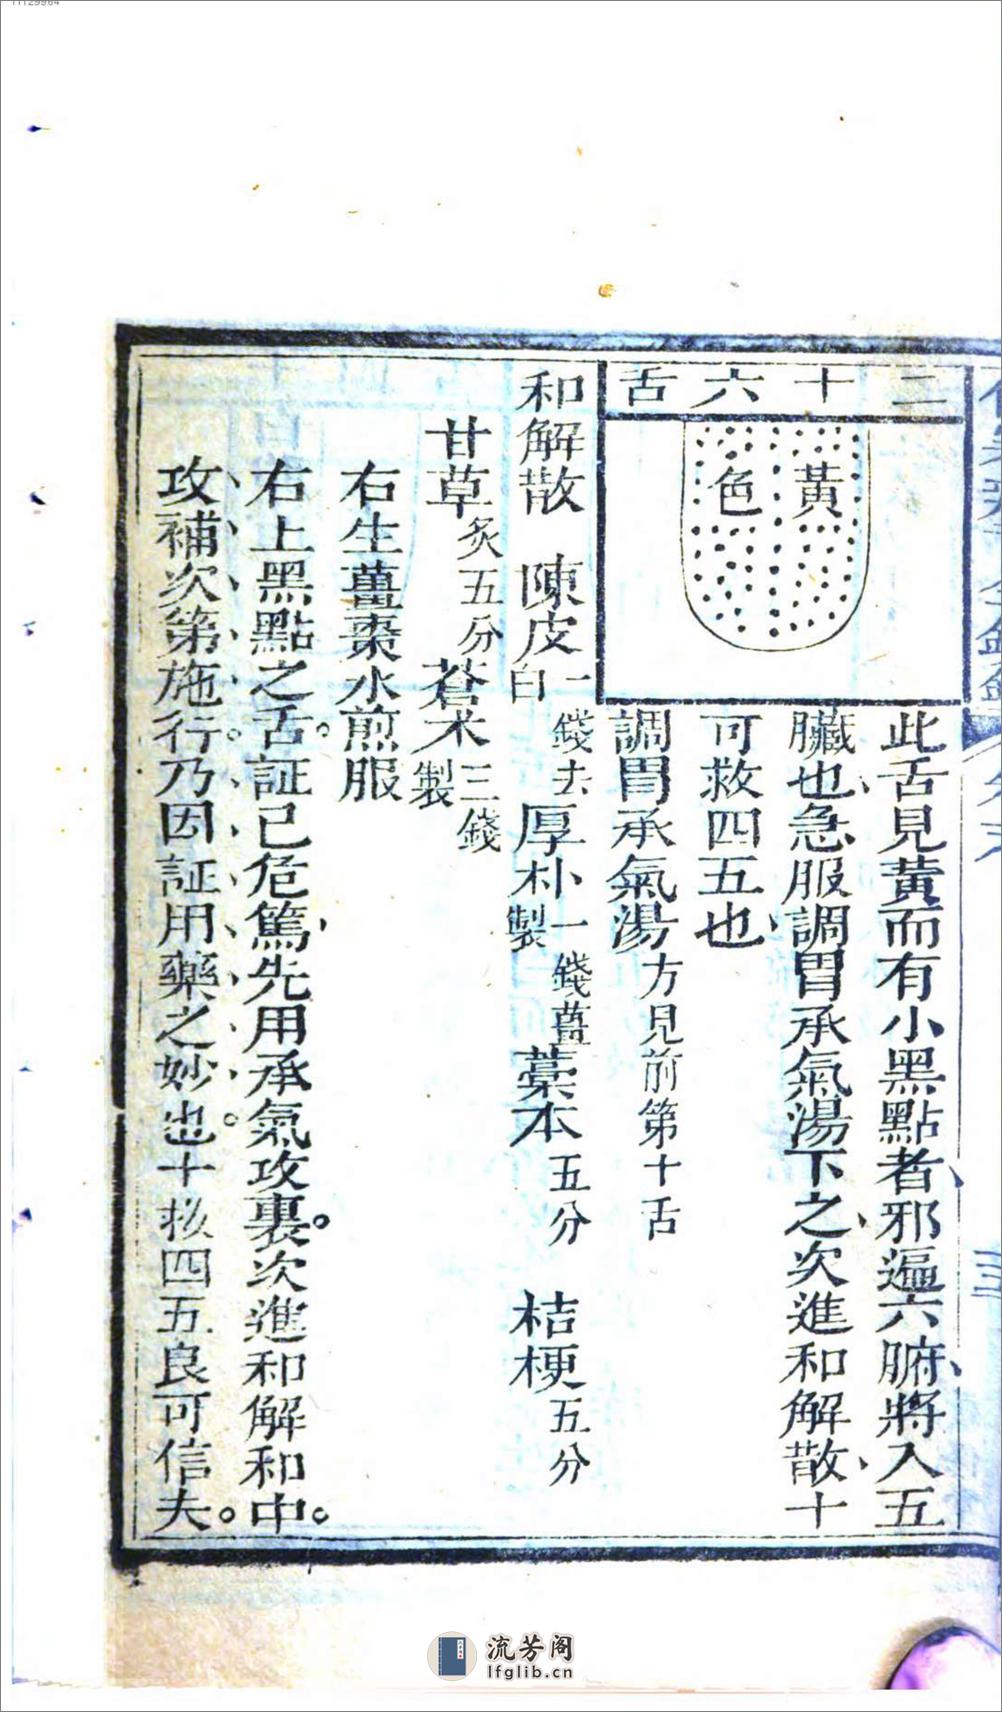 二十六舌
黃
色
此舌見黃而有小黑點者邪遍六腑將入五
臟也急服調胃承氣湯下之次進和解散十
可救四五也
調胃承氣湯方見前第十舌
和解散 陳皮一錢去白 厚朴一錢薑製 藁本五分 桔梗五分
甘草炙五分 蒼术三錢製
右生薑棗水煎服
右上黑點之舌証已危篤先用承氣攻裏次進和解和中
攻補次第施行乃因証用藥之妙也十救四五良可信夫
流芳阁
lfglib.cn